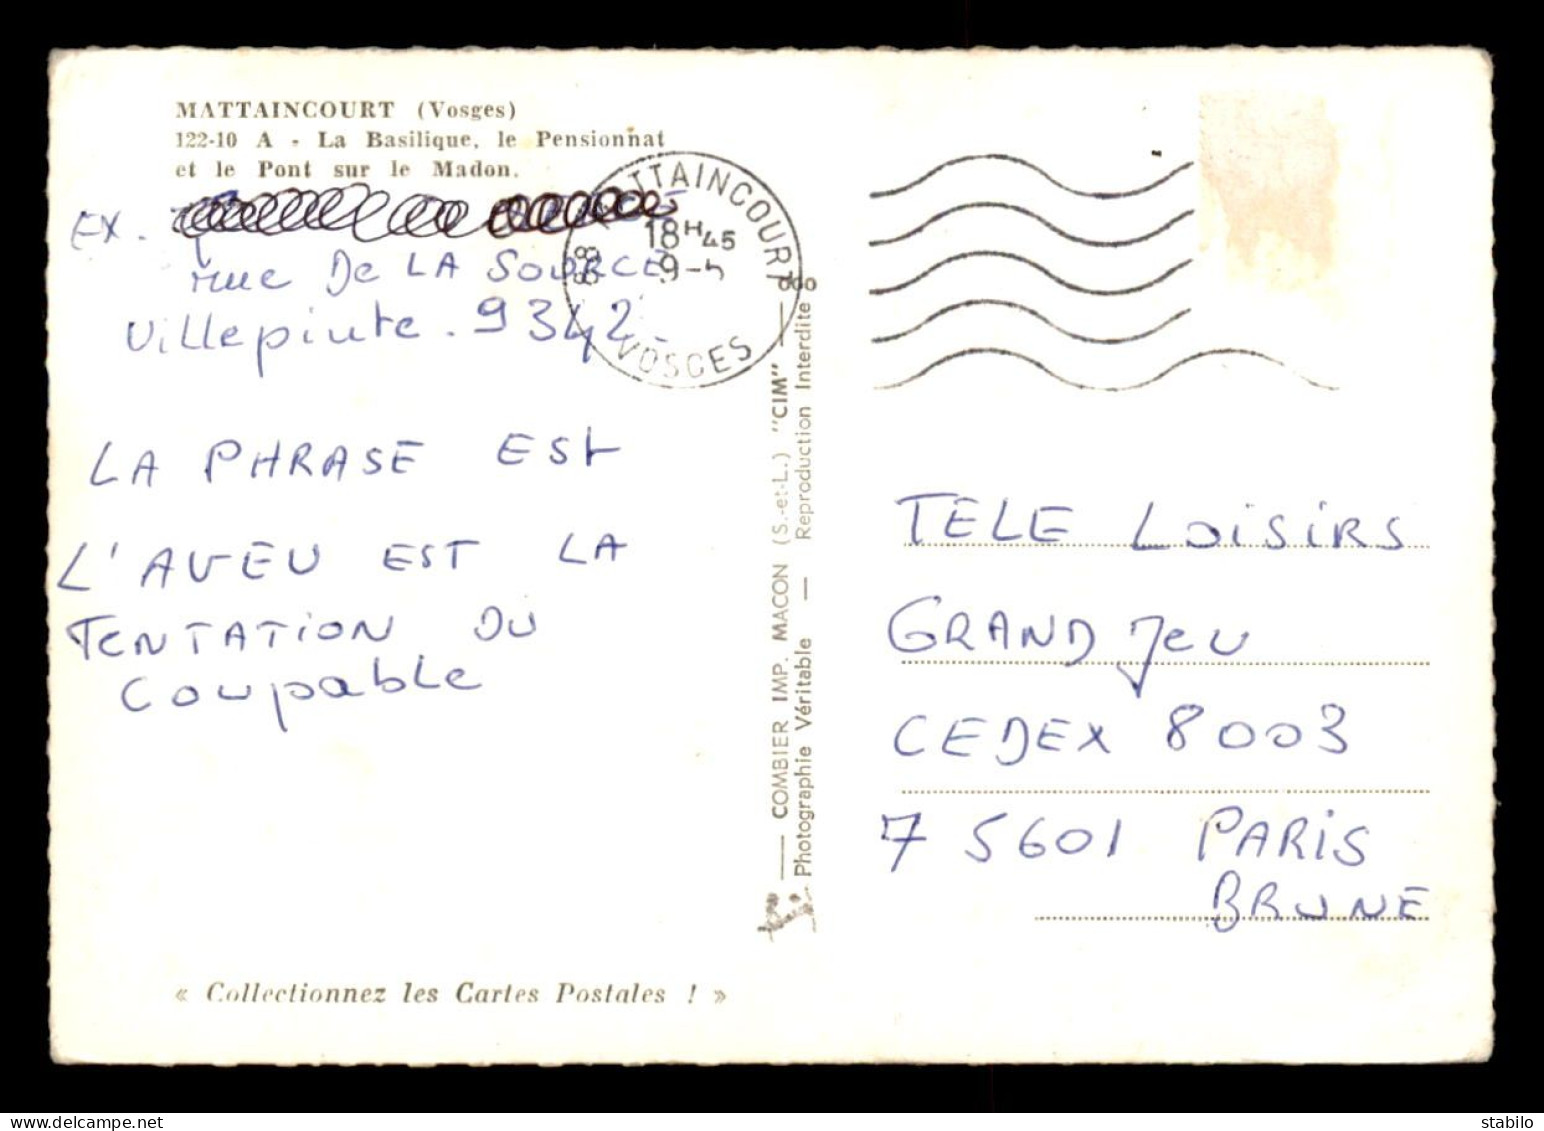 MATTAINCOURT (Vosges)
122-10 A - La Basilique, le Pensionnat
et le Pont sur le Madon.
EX.
rue De LA SOURCE
Villepinte . 9342
LA PHRASE EST
L'AVEU EST LA
TENTATION DU
Coupable
« Collectionnez les Cartes Postales ! »
MATTAINCOURT
18H45
9-5
88
VOSGES
COMBIER IMP. MACON (S.-et-L.) "CIM" —
Photographie Véritable — Reproduction Interdite
TELE LOISIRS
GRAND JEU
CEDEX 8003
75601 PARIS
BRUNE
delcampe.net
stabilo